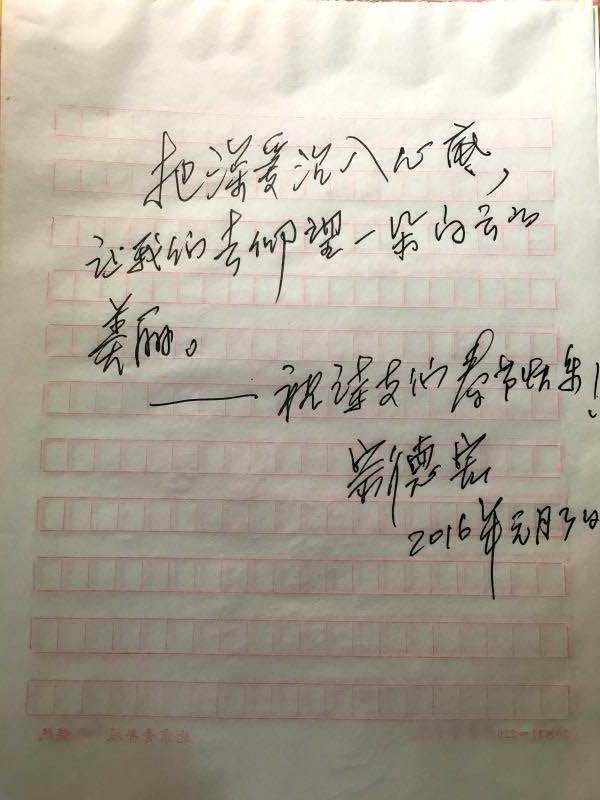 把深爱沉入心底，
让我们去仰望一朵白云的
美丽。
——祝诗友们春节快乐！
宗德宏
2016年元月3日